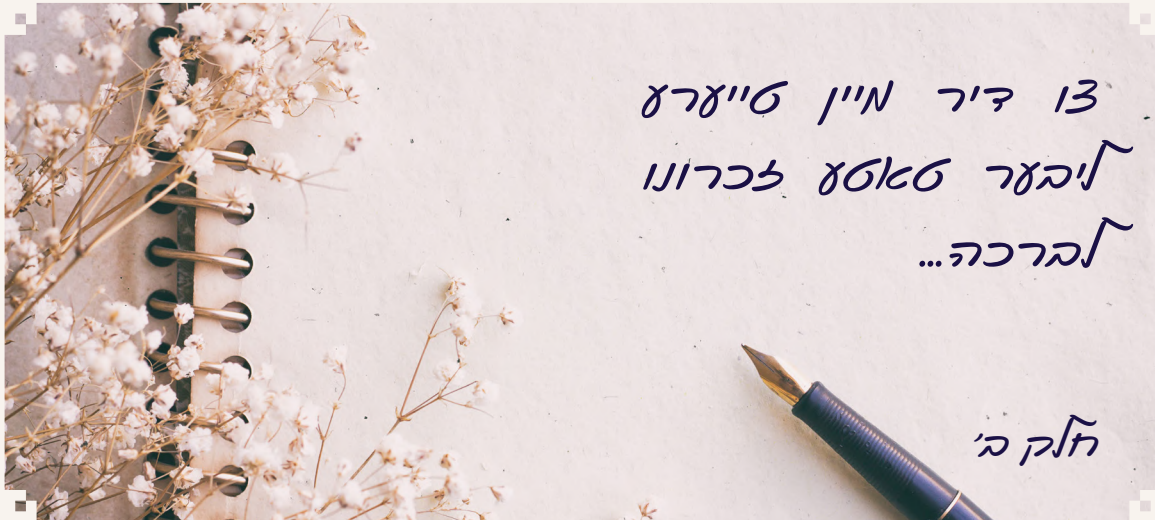 צו דיר מיין טייערע
ליבער טאטע זכרונו
לברכה...
חלק ב'